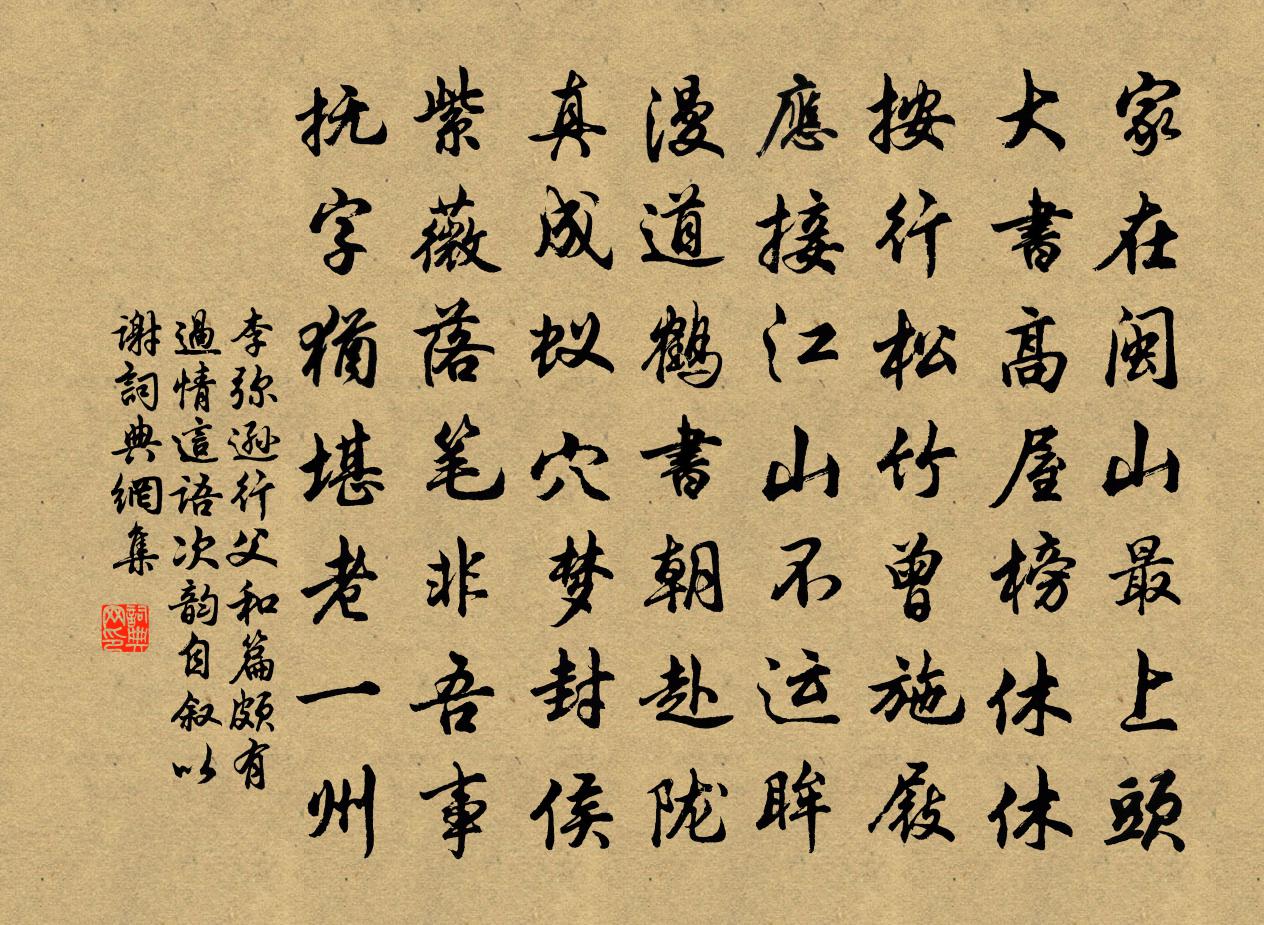 家在闽山最上頭
大書高屋榜休休
按行松竹曾施屐
應接江山不运眸
漫道鶴書朝赴陇
真成蚁穴梦封侯
紫薇落笔非吾事
抚字猶堪老一州
李弥遜行父和篇頗有
過情這語次韵自叙以
謝詞典網集
詞典
网印